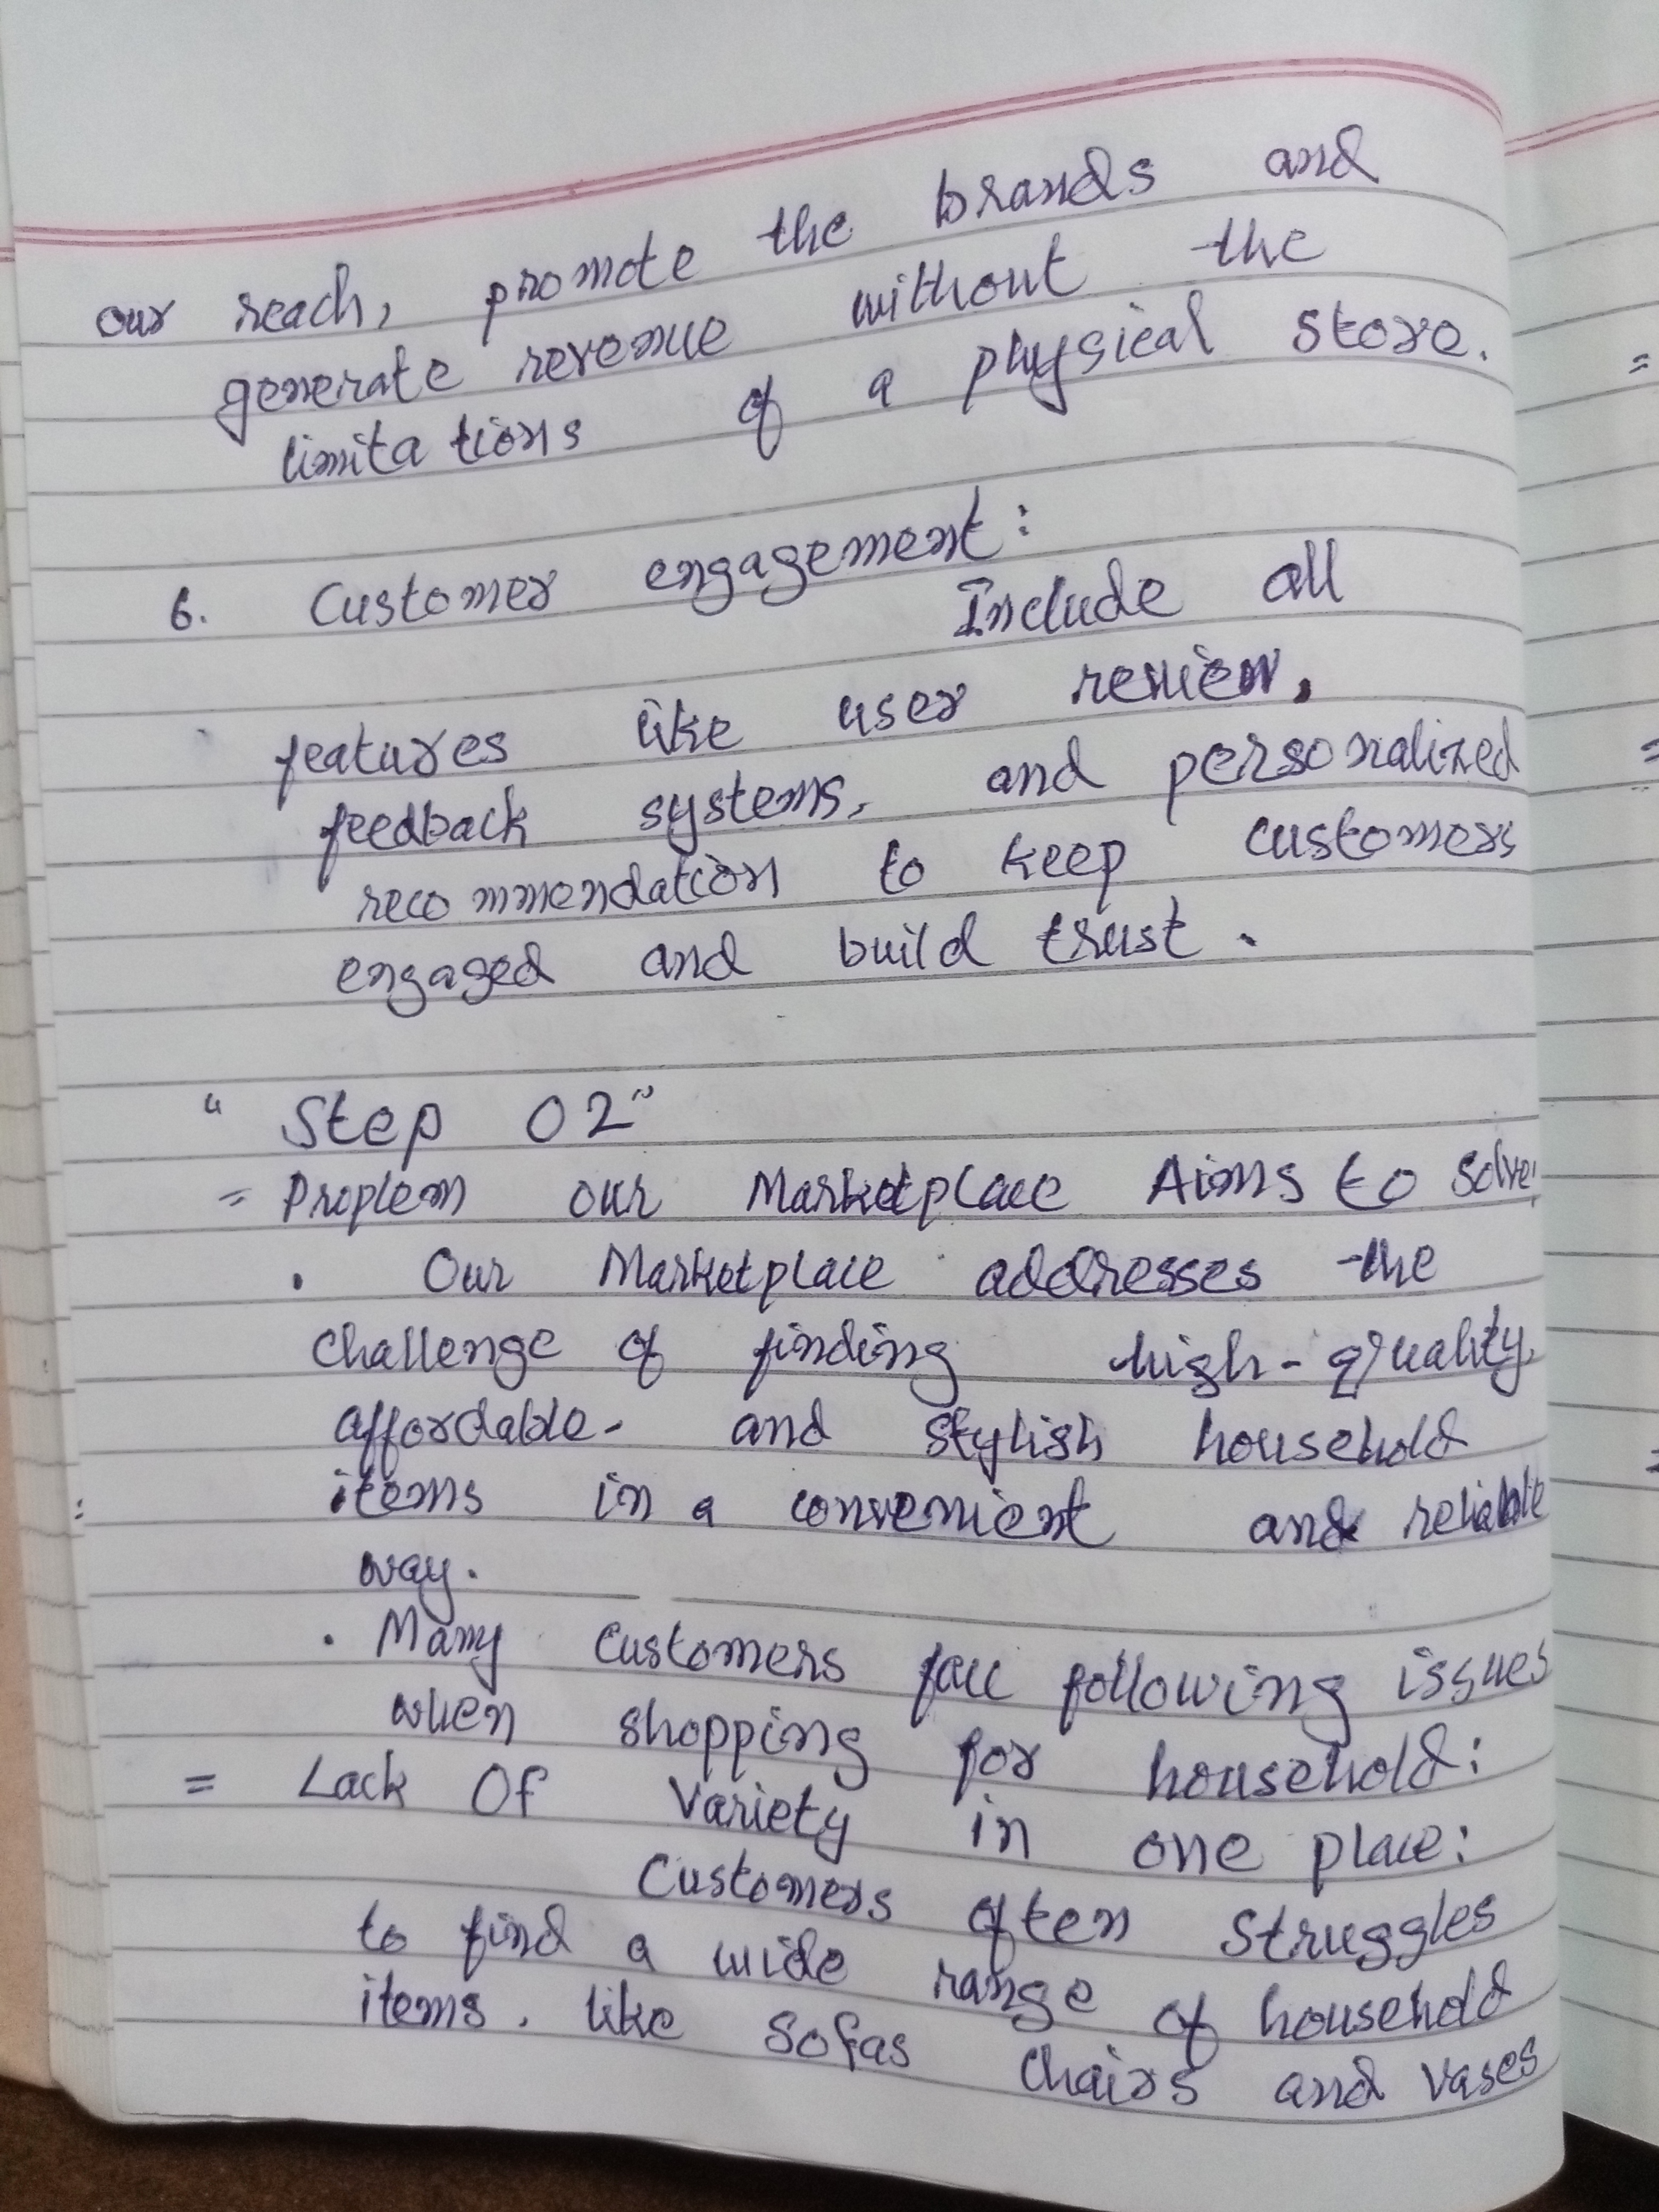 our reach, promote the brands and
generate revenue without the
limitations of a physical store.
6. Customer engagement:
Include all
features like user review,
feedback systems, and personalized
recommendation to keep customers
engaged and build trust.
"Step 02"
= Proplem our Marketplace Aims to solve:
. Our Marketplace addresses the
challenge of finding high-quality,
affordable- and stylish household
items in a convenient and reliable
way.
. Many customers face following issues
when shopping for household:
= Lack Of Variety in one place:
Customers often struggles
to find a wide range of household
items. like sofas chairs and vases